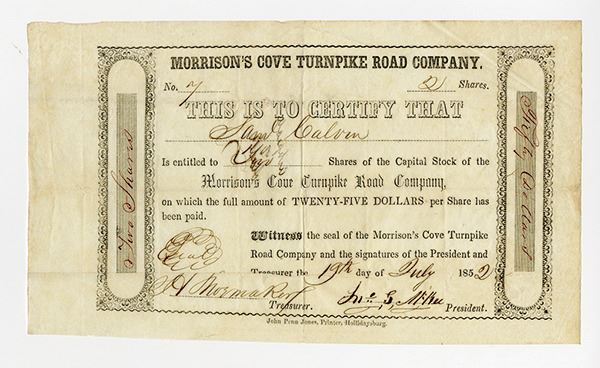 MORRISON'S COVE TURNPIKE ROAD COMPANY.
No. 7 2 Shares.
THIS IS TO CERTIFY THAT
Saml Calvin
Is entitled to Two Shares of the Capital Stock of the
Morrison's Cove Turnpike Road Company,
on which the full amount of TWENTY-FIVE DOLLARS per Share has
been paid.
Witness the seal of the Morrison's Cove Turnpike
Road Company and the signatures of the President and
Treasurer the 19th day of July 1852
Seal
Shoemaker Jno McKee
Treasurer. President.
John Penn Jones, Printer, Hollidaysburg.
Two Shares
Fifty Dollars